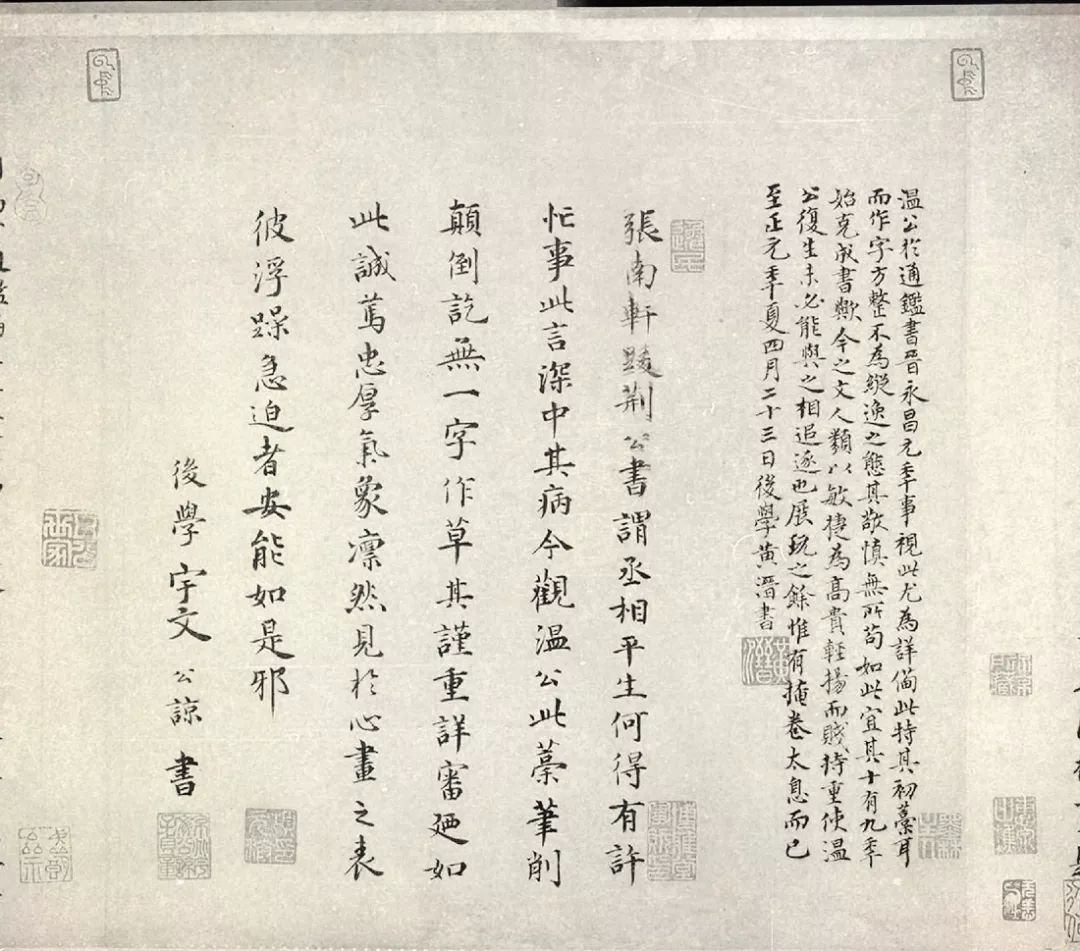 溫公於通鑑書晉永昌元年事視此尤為詳備此特其初藁耳
而作字方整不為縱逸之態其敬慎無所苟如此宜其十有九年
始克成書歟今之文人類以敏捷為高貴輕揚而賤持重使溫
公復生未必能與之相追逐也展玩之餘惟有掩卷太息而已
至正元年夏四月二十三日後學黃溍書
黃溍
張南軒跋荆公書謂丞相平生何得有許
忙事此言深中其病今觀溫公此藁筆削
顛倒訖無一字作草其謹重詳審迺如
此誠篤忠厚氣象凛然見於心畫之表
彼浮躁急迫者安能如是邪
後學宇文公諒書